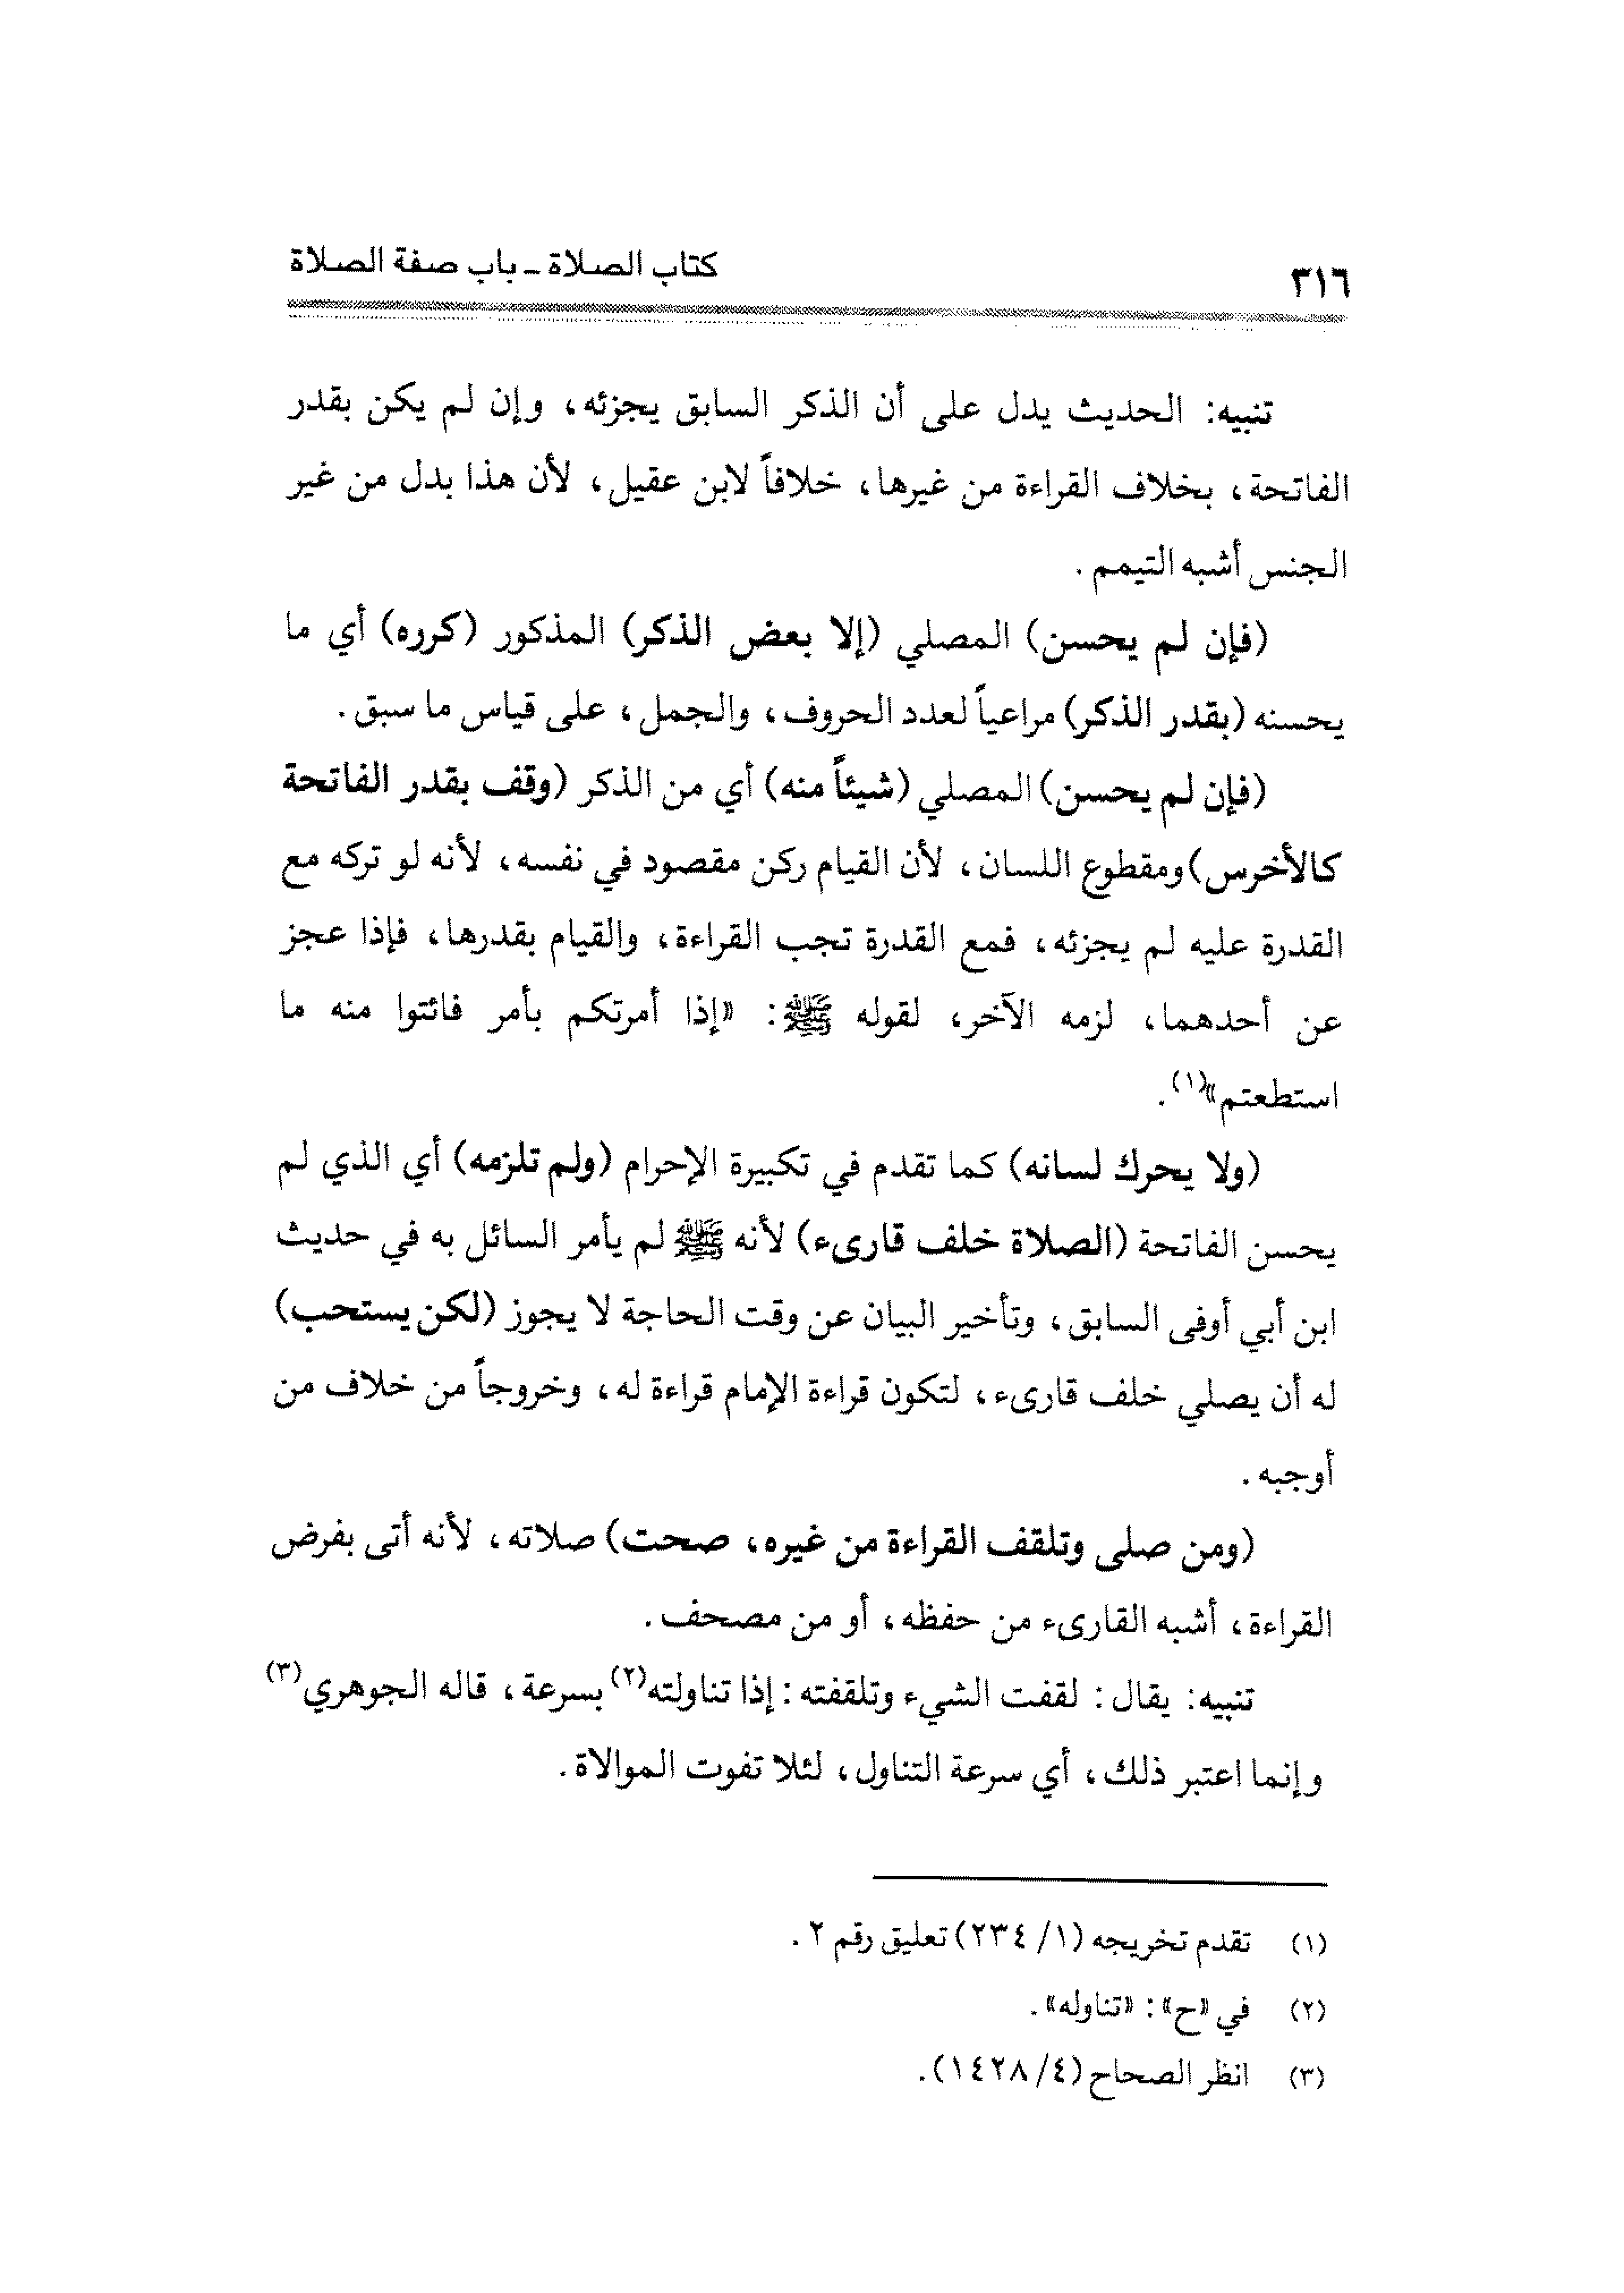 ٣١٦
كتاب الصلاة ـ باب صفة الصلاة
تنبيه: الحديث يدل على أن الذكر السابق يجزئه، وإن لم يكن بقدر
الفاتحة، بخلاف القراءة من غيرها، خلافاً لابن عقيل، لأن هذا بدل من غير
الجنس أشبه التيمم.
(فإن لم يحسن) المصلي (إلا بعض الذكر) المذكور (كرره) أي ما
يحسنه (بقدر الذكر) مراعياً لعدد الحروف، والجمل، على قياس ما سبق.
(فإن لم يحسن) المصلي (شيئاً منه) أي من الذكر (وقف بقدر الفاتحة
كالأخرس) ومقطوع اللسان، لأن القيام ركن مقصود في نفسه، لأنه لو تركه مع
القدرة عليه لم يجزئه، فمع القدرة تجب القراءة، والقيام بقدرها، فإذا عجز
عن أحدهما، لزمه الآخر، لقوله ﷺ: «إذا أمرتكم بأمر فائتوا منه ما
استطعتم»(١).
(ولا يحرك لسانه) كما تقدم في تكبيرة الإحرام (ولم تلزمه) أي الذي لم
يحسن الفاتحة (الصلاة خلف قارىء) لأنه ﷺ لم يأمر السائل به في حديث
ابن أبي أوفى السابق، وتأخير البيان عن وقت الحاجة لا يجوز (لكن يستحب)
له أن يصلي خلف قارىء، لتكون قراءة الإمام قراءة له، وخروجاً من خلاف من
أوجبه.
(ومن صلى وتلقف القراءة من غيره، صحت) صلاته، لأنه أتى بفرض
القراءة، أشبه القارىء من حفظه، أو من مصحف.
تنبيه: يقال: لقفت الشيء وتلقفته: إذا تناولته(٢) بسرعة، قاله الجوهري(٣)
وإنما اعتبر ذلك، أي سرعة التناول، لئلا تفوت الموالاة.
(١) تقدم تخريجه (١/ ٢٣٤) تعليق رقم ٢.
(٢) في «ح»: «تناوله».
(٣) انظر الصحاح (٤/ ١٤٢٨).